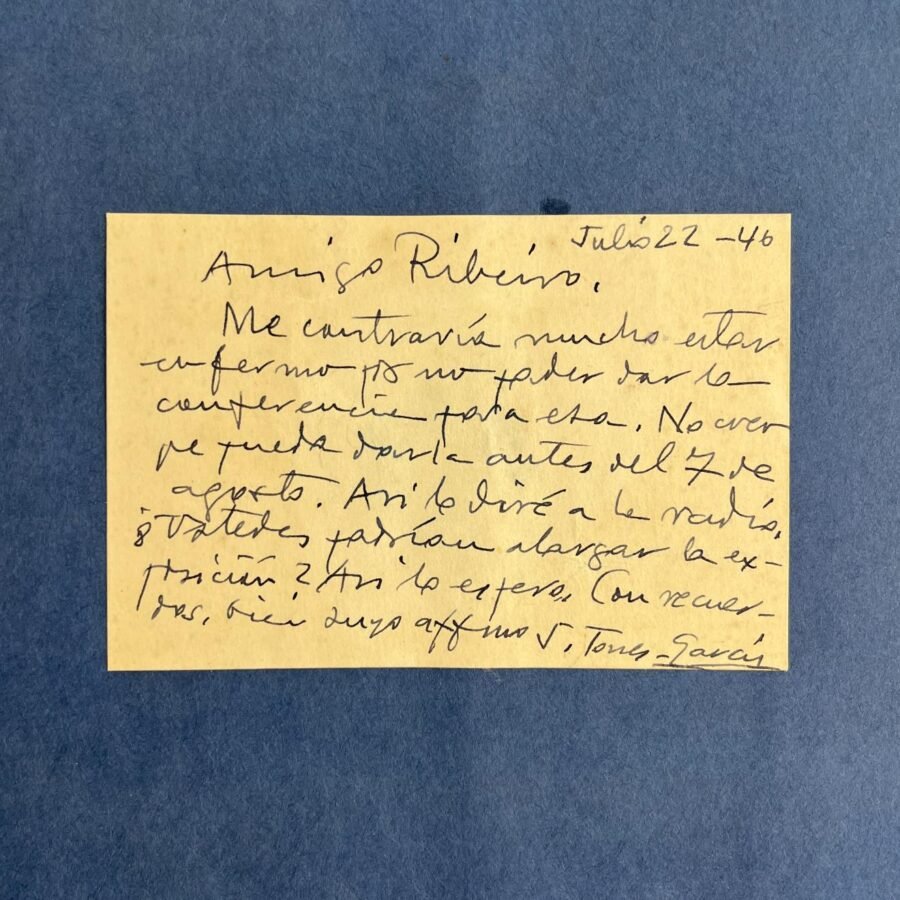 Julio 22 - 46
Amigo Ribeiro.
Me contraría mucho estar
enfermo pr no poder dar la
conferencia para esa. No creo
pe pueda darla antes del 7 de
agosto. Asi lo diré a la radio.
¿Ustedes podrían alargar la ex-
posición? Asi lo espero. Con recuer-
dos, bien suyo affmo J. Torres-García